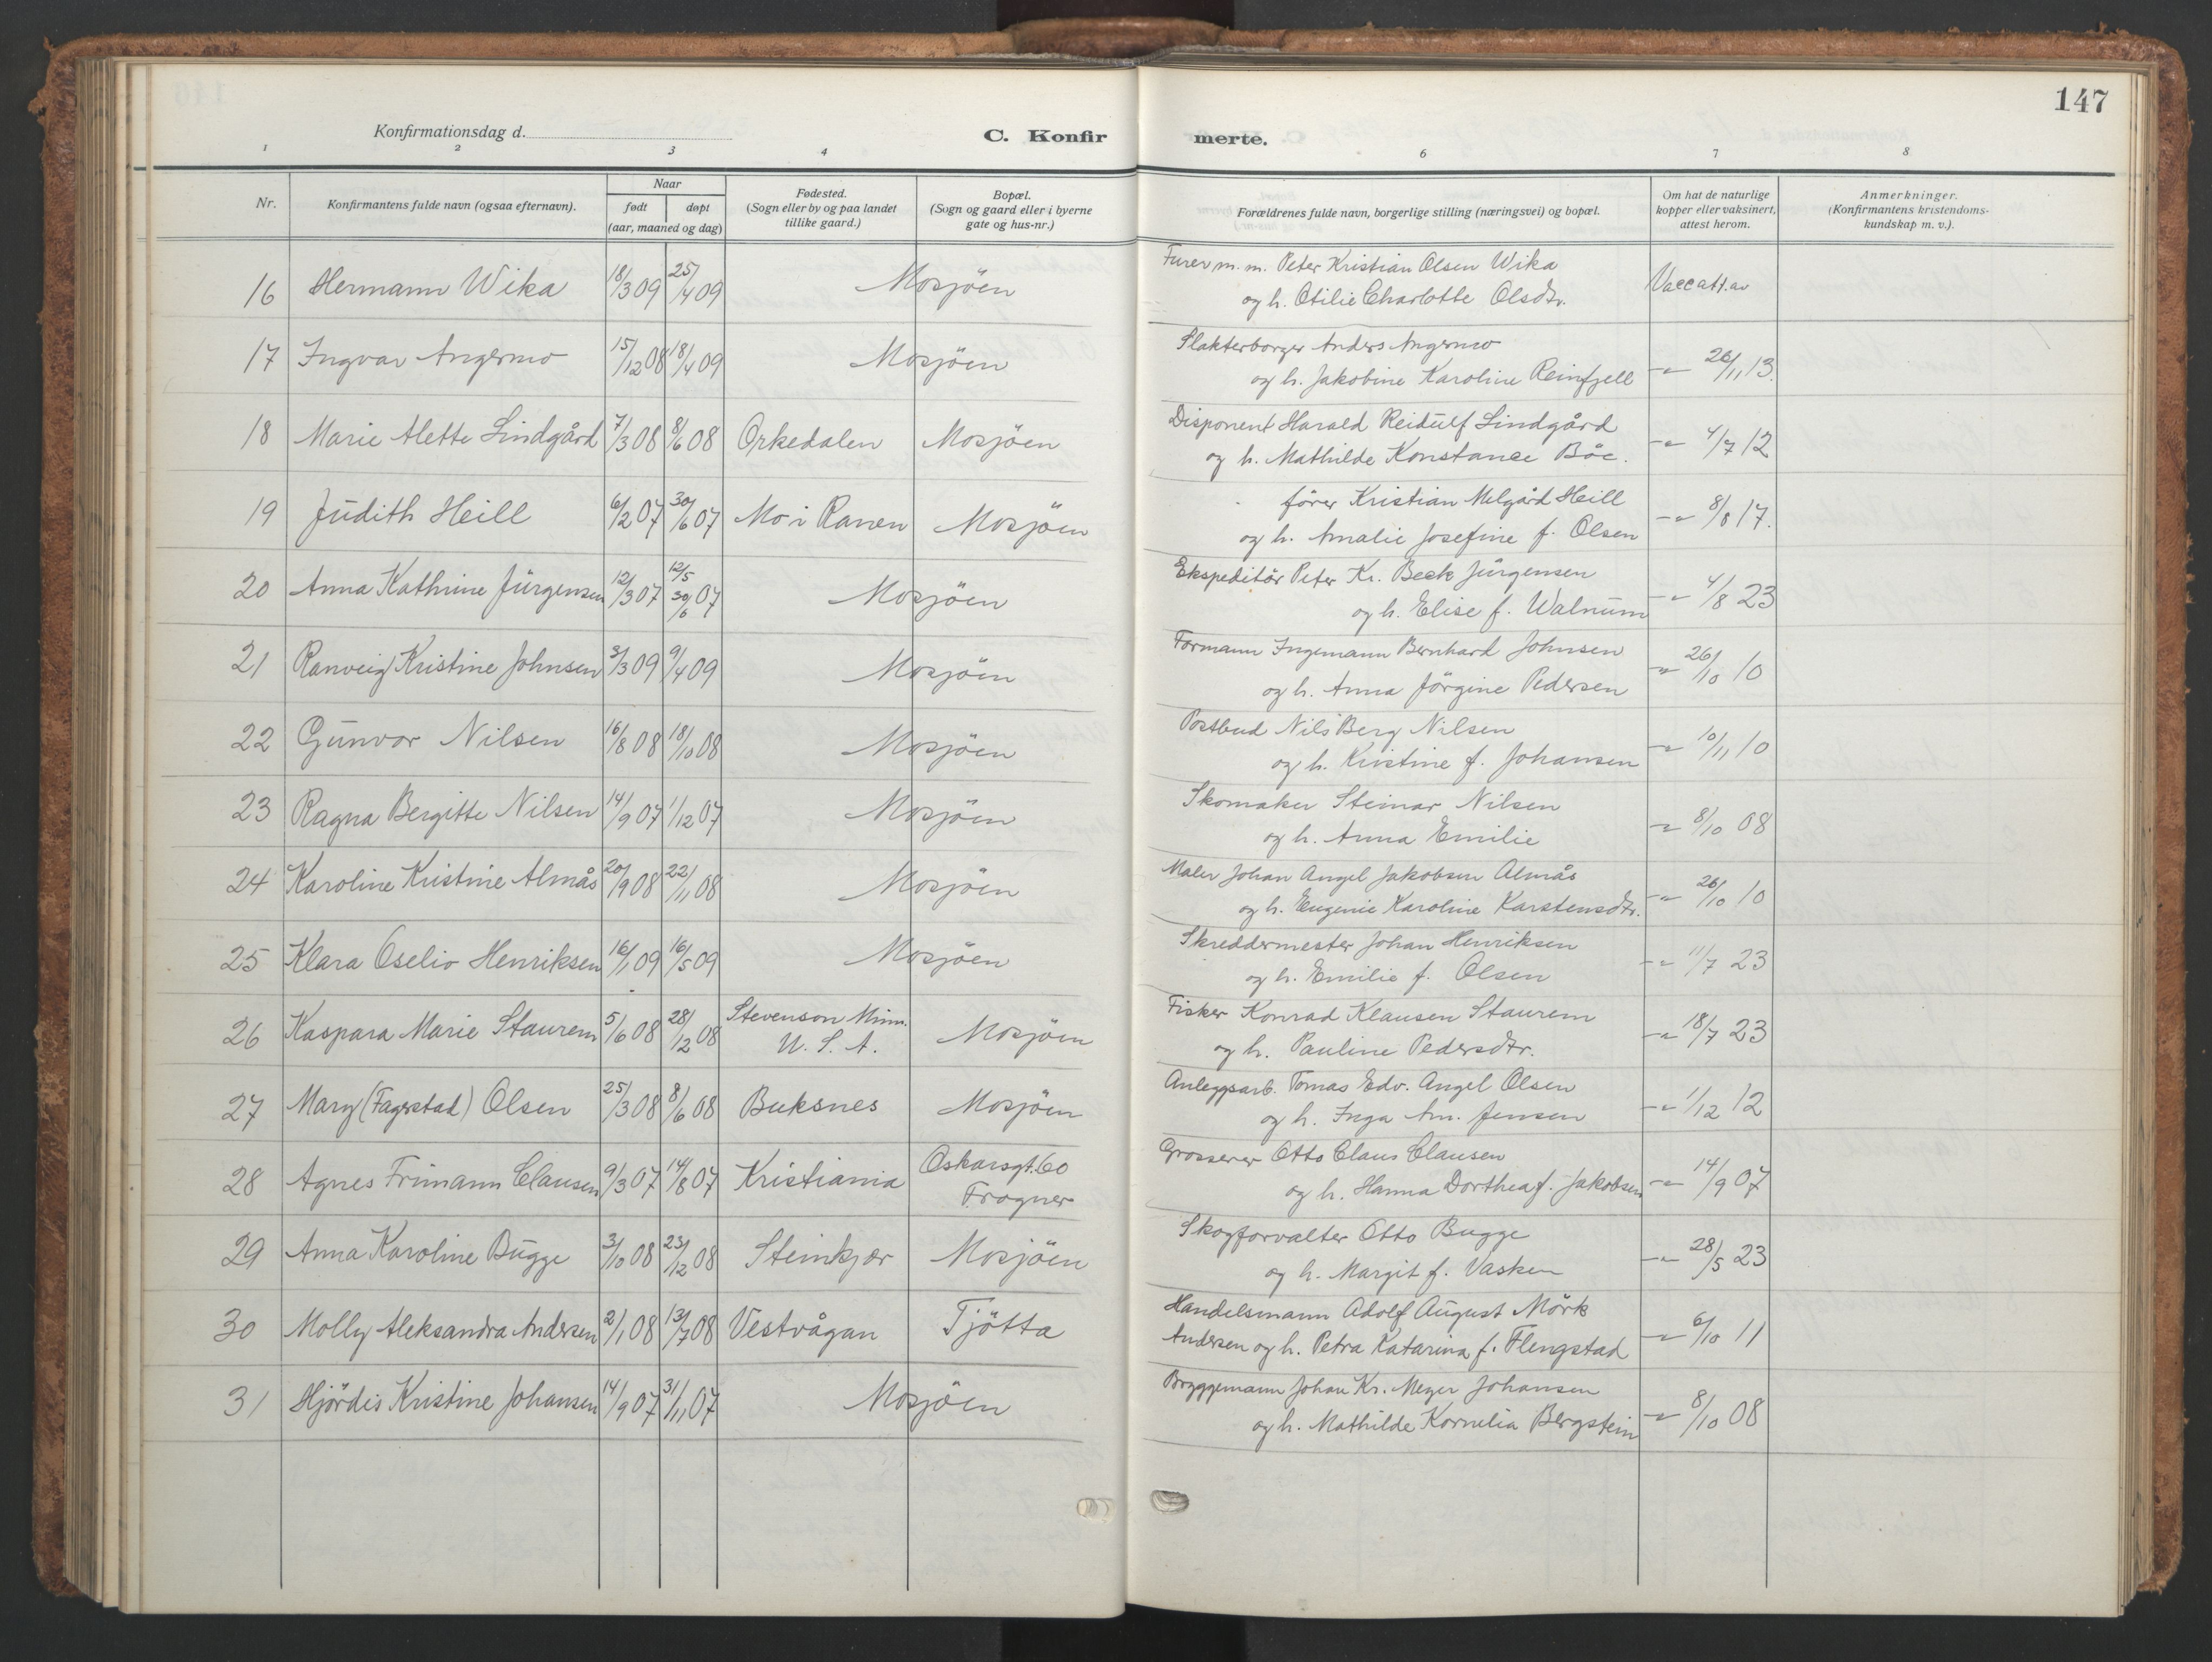 147
Konfirmationsdag d.
C. Konfirmerte.
1 2 3 4 6 7 8
Nr. Konfirmantens fulde navn (ogsaa efternavn). Naar født døpt (aar, maaned og dag) Fødested. (Sogn eller by og paa landet tillike gaard.) Bopæl. (Sogn og gaard eller i byerne gate og hus-nr.) Forældrenes fulde navn, borgerlige stilling (næringsvei) og bopæl. Om hat de naturlige kopper eller vaksinert, attest herom. Anmerkninger. (Konfirmantens kristendoms-kundskap m. v.).
16 Hermann Wika 18/3 09 25/4 09 Mosjöen Furer m. m. Peter Kristian Olsen Wika
og h. Otilie Charlotte Olsdtr. Vaccatt. av
17 Ingvar Angermo 15/12 08 18/4 09 Mosjöen Slakterborger Anders Angermo
og h. Jakobine Karoline Reinfjell -"- 26/11 13.
18 Marie Alette Lindgård 7/3 08 8/6 08 Orkedalen Mosjöen Disponent Harald Reidulf Lindgård
og h. Mathilde Konstance Böe. -"- 4/7 12
19 Judith Heill 6/2 07 30/6 07 Mo i Ranen Mosjöen förer Kristian Melgård Heill
og h. Amalie Josefine f. Olsen -"- 8/8 17.
20 Anna Kathrine Jürgensen 12/3 07 12/5 30/6 07 Mosjöen Ekspeditör Peter Kr. Beck Jürgensen
og h. Elise f. Walnum -"- 4/8 23
21 Ranveig Kristine Johnsen 3/3 09 9/4 09 Mosjöen Formann Ingemann Bernhard Johnsen
og h. Anna Jörgine Pedersen -"- 26/10 10
22 Gunvor Nilsen 16/8 08 18/10 08 Mosjöen Postbud Nils Berg Nilsen
og h. Kristine f. Johansen -"- 10/11 10
23 Ragna Bergitte Nilsen 14/9 07 1/12 07 Mosjöen Skomaker Steinar Nilsen
og h. Anna Emilie -"- 8/10 08
24 Karoline Kristine Almås 20/9 08 22/11 08 Mosjöen Maler Johan Angel Jakobsen Almås
og h. Eugenie Karoline Karstensdtr. -"- 26/10 10
25 Klara Oselio Henriksen 16/1 09 16/5 09 Mosjöen Skreddermester Johan Henriksen
og h. Emilie f. Olsen -"- 11/7 23
26 Kaspara Marie Staurem 5/6 08 28/12 08 Stevenson Minn. U. S. A. Mosjöen Fisker Konrad Klausen Staurem
og h. Pauline Pedersdtr. -"- 18/7 23
27 Mary (Fagerstad) Olsen 25/3 08 8/6 08 Buksnes Mosjöen Anleggsarb. Tomas Edv. Angel Olsen
og h. Inga Am. Jensen -"- 1/12 12
28 Agnes Frimann Clausen 9/3 07 14/8 07 Kristiania Oskarsgt. 60 Frogner Grosserer Otto Claus Clausen
og h. Hanna Dorthea f. Jakobsen -"- 14/9 07
29 Anna Karoline Bugge 3/10 08 23/12 08 Steinkjær Mosjöen Skogforvalter Otto Bugge
og h. Margit f. Vasken -"- 28/5 23
30 Molly Aleksandra Andersen 2/1 08 13/7 08 Vestvågan Tjötta Handelsmann Adolf August Mörk
Andersen og h. Petra Katarina f. Flengstad -"- 6/10 11
31 Hjördis Kristine Johansen 14/9 07 31/11 07 Mosjöen Bryggemann Johan Kr. Meyer Johansen
og h. Mathilde Kornelia Bergstein -"- 8/10 08